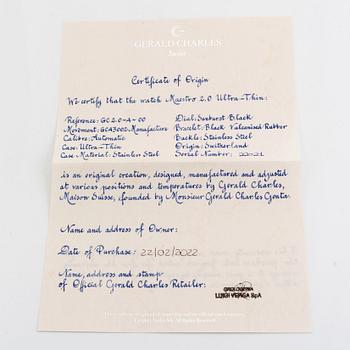 GERALD CHARLES
Swiss
Certificate of Origin
We certify that the watch Maestro 2.0 Ultra-Thin:
Reference: GC2.0-A-00
Movement: GCA3002-Manufacture
Calibre: Automatic
Case: Ultra-Thin
Case Material: Stainless Steel
Dial: Sunburst Black
Bracelet: Black Vulcanised Rubber
Buckle: Stainless Steel
Origin: Switzerland
Serial Number:
is an original creation, designed, manufactured and adjusted
at various positions and temperatures by Gerald Charles,
Maison Suisse, founded by Monsieur Gérald Charles Genta.
Name and address of Owner:
Date of Purchase: 22/02/2022
Name, address and stamp
of Official Gerald Charles Retailer:
LUIGI VERGA SpA